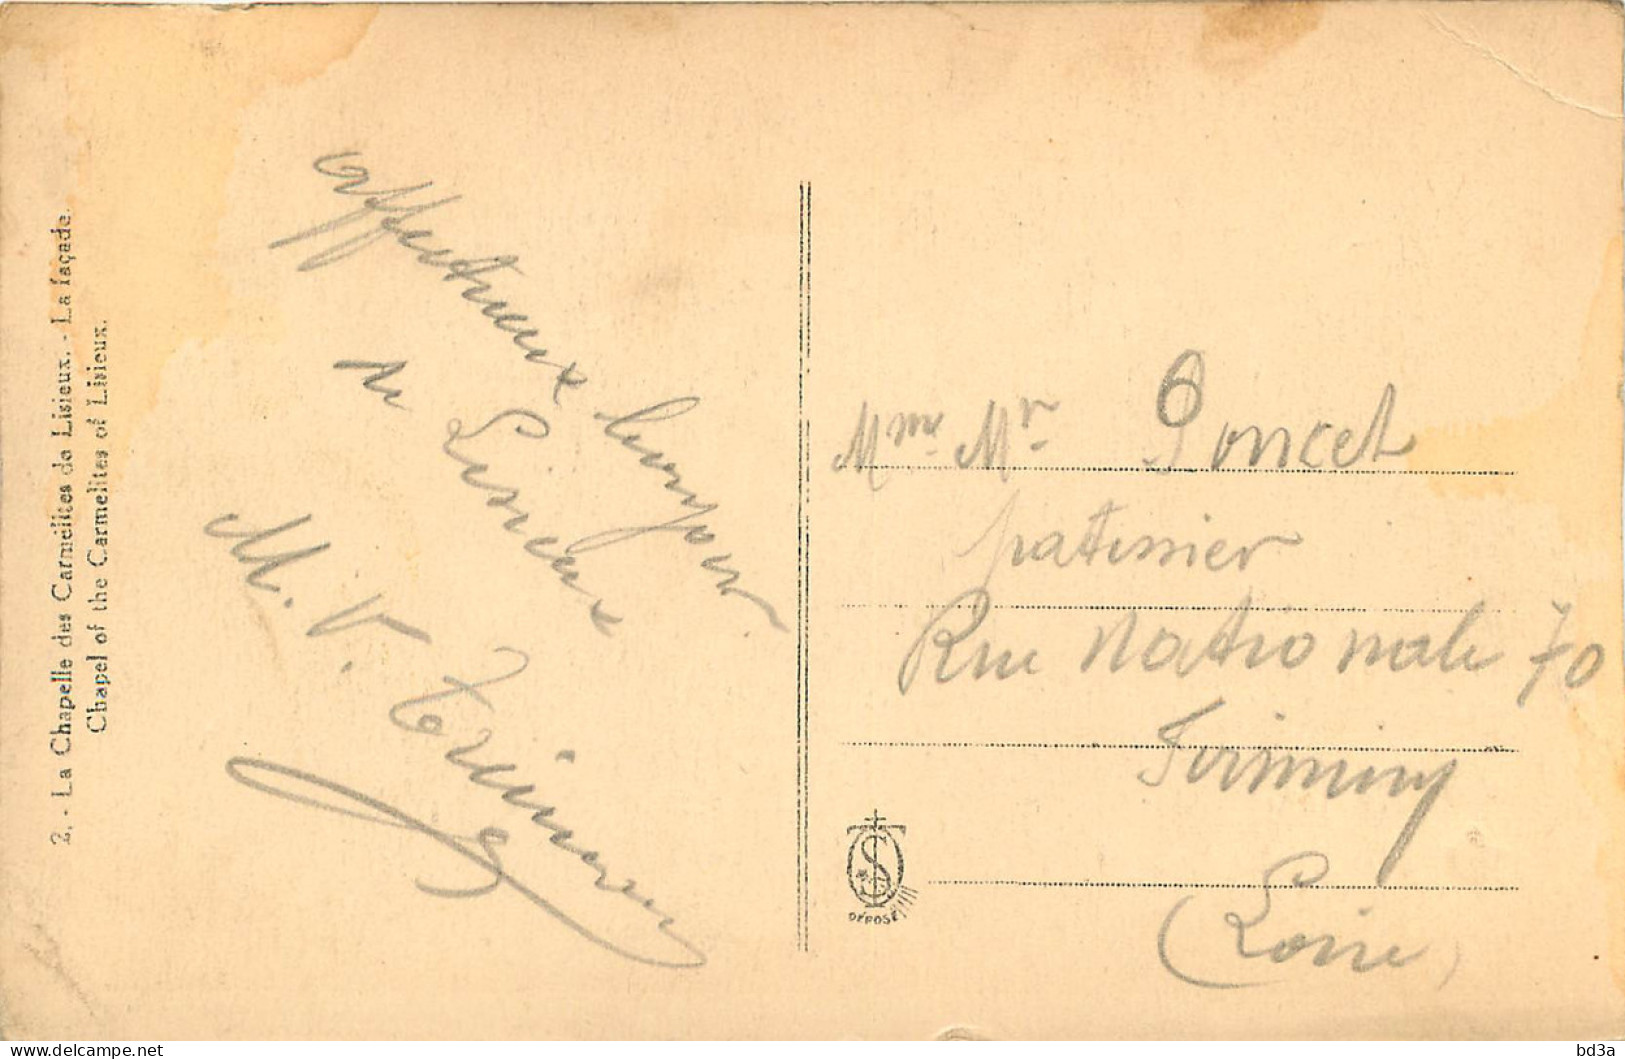 2. - La Chapelle des Carmelites de Lisieux. - La façade.
Chapel of the Carmelites of Lisieux.
affectueux bonjour
de Lisieux
M. V.
Mme. Mr. Poncet
patissier
Rue Nationale 70
Firminy
(Loire)
DÉPOSÉ
bd3a